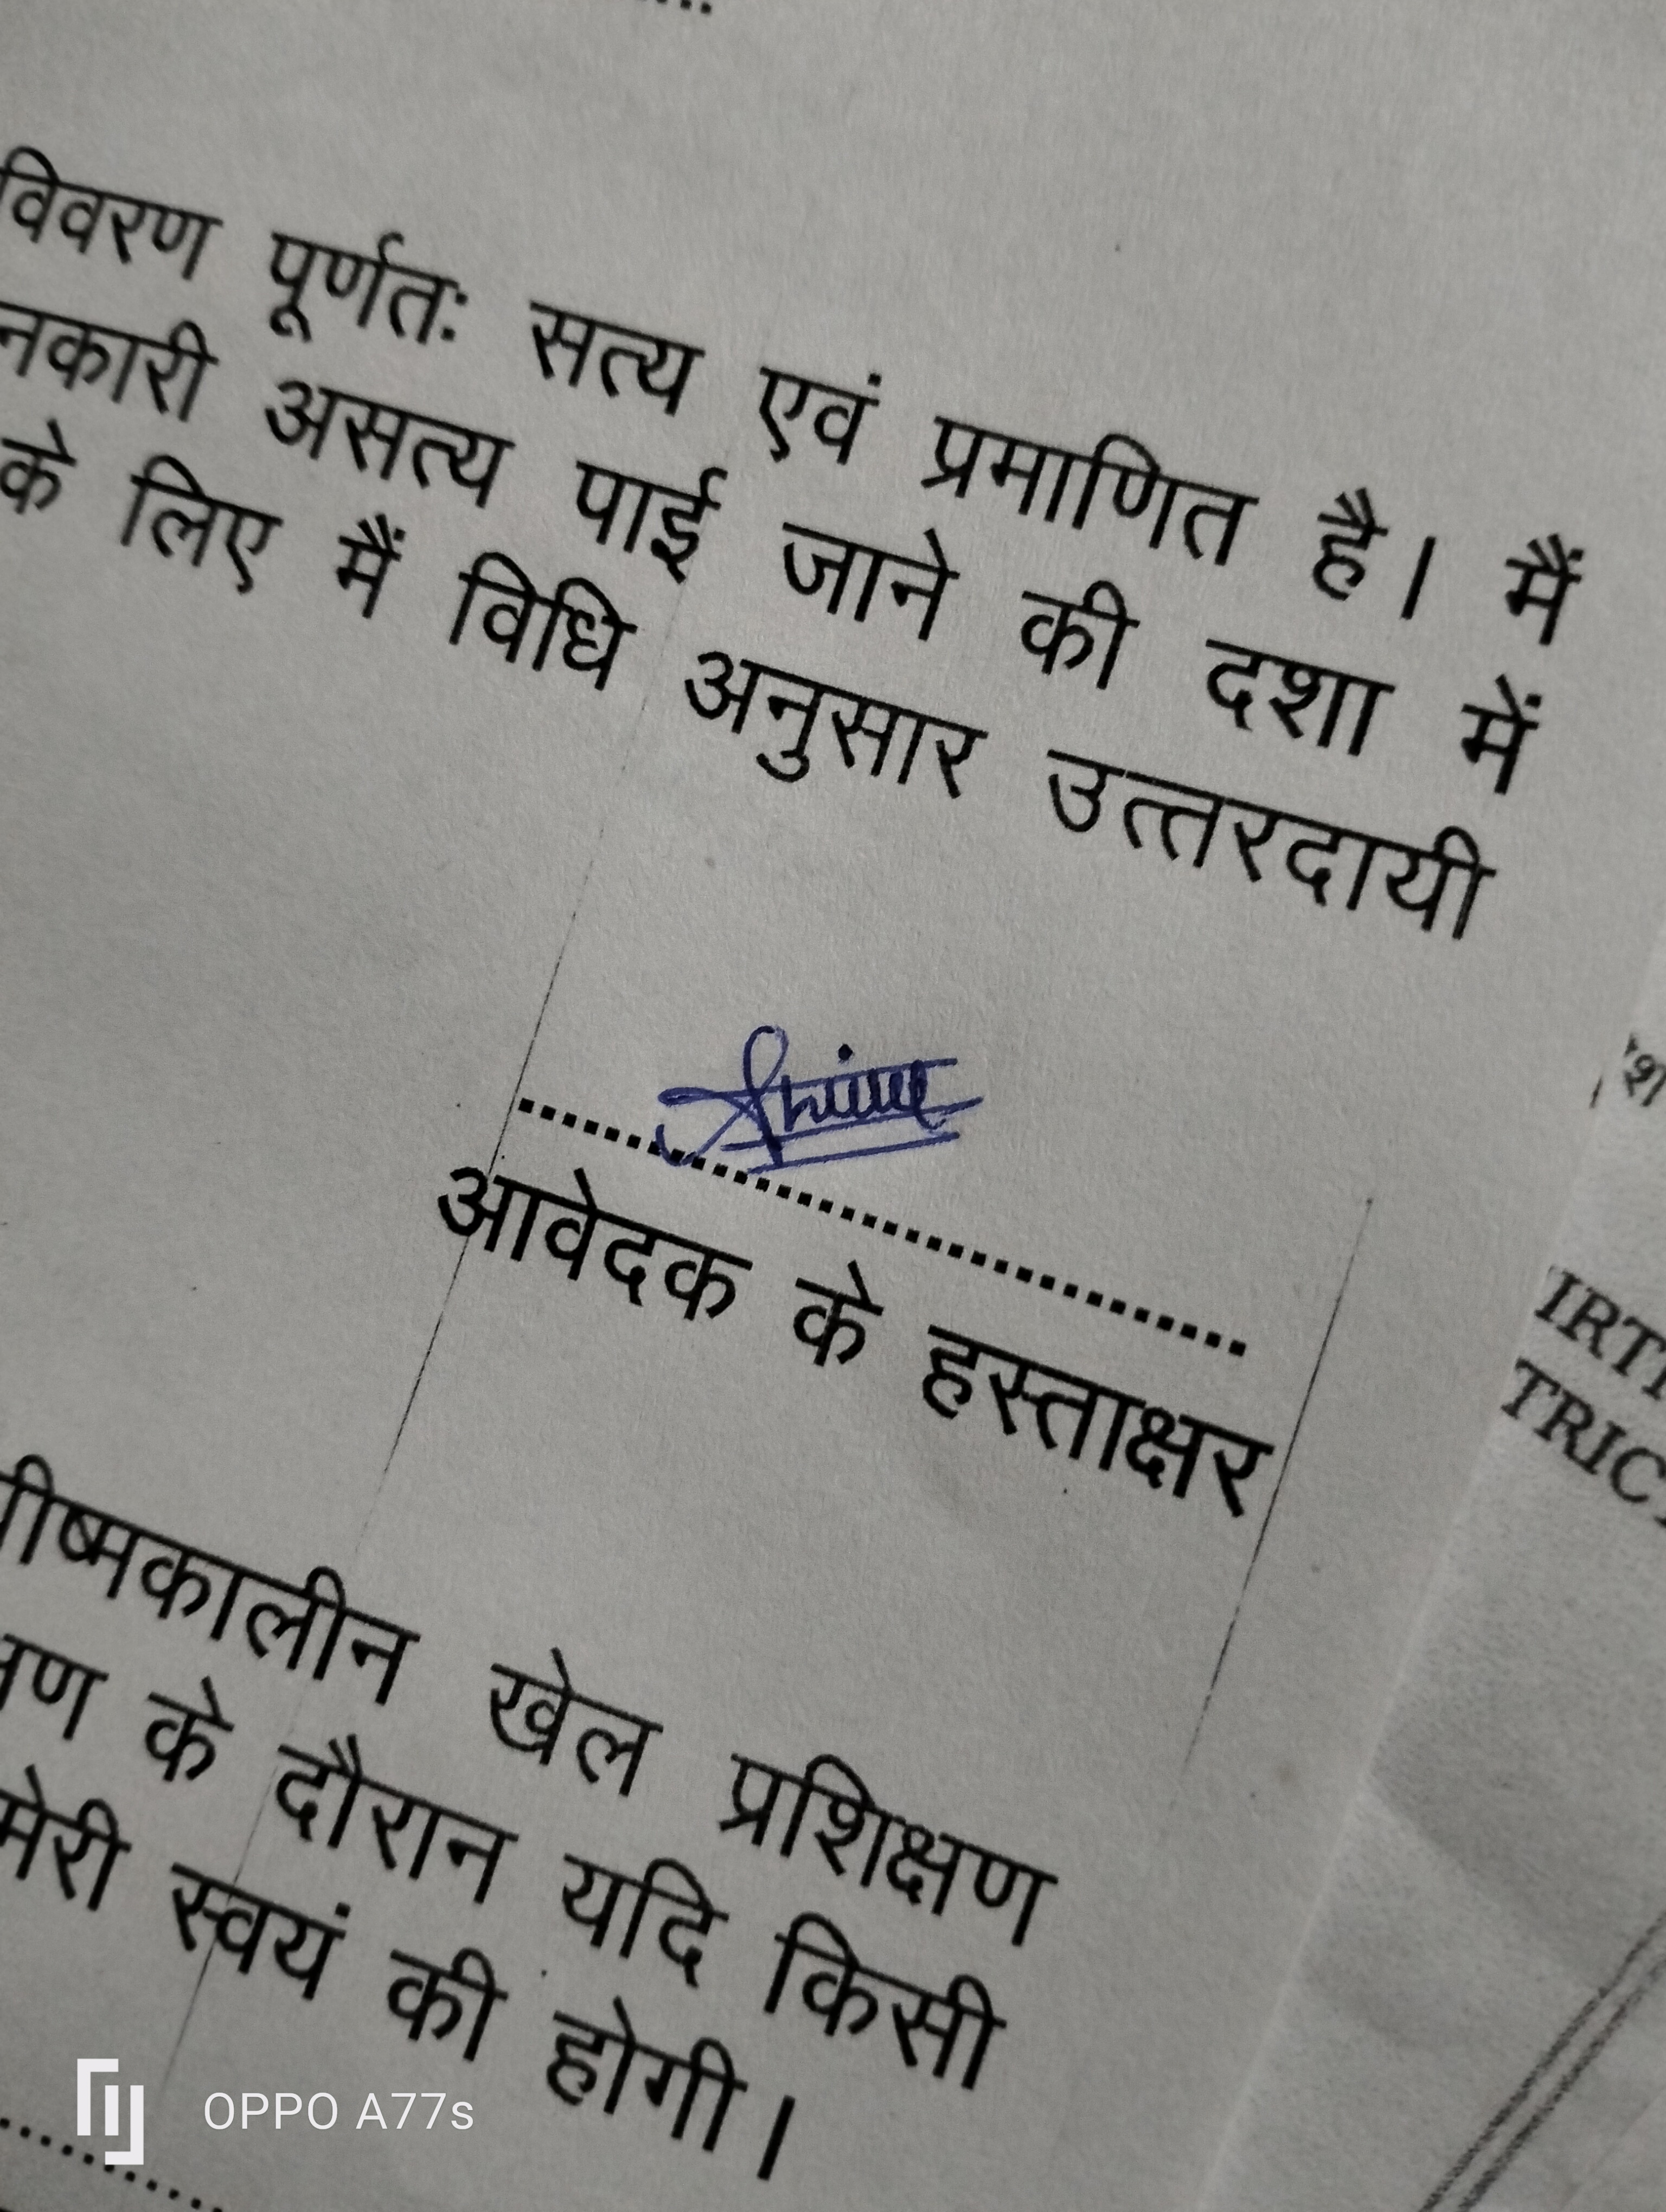 विवरण पूर्णतः सत्य एवं प्रमाणित है। मैं
नकारी असत्य पाई जाने की दशा में
के लिए मैं विधि अनुसार उत्तरदायी
आवेदक के हस्ताक्षर
IRT
TRIC
ीष्मकालीन खेल प्रशिक्षण
षण के दौरान यदि किसी
मेरी स्वयं की होगी।
OPPO A77s